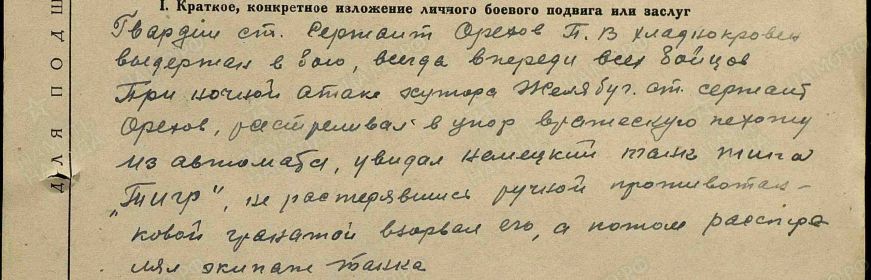 I. Краткое, конкретное изложение личного боевого подвига или заслуг
Гвардии ст. Сержант Орехов П. В хладнокровен
выдержан в бою, всегда впереди всех бойцов
При ночной атаке хутора Желябуг. ст. сержант
Орехов, расстреливал в упор вражескую пехоту
из автомата, увидал немецкий танк типа
„Тигр", не растерявшись ручной противотан-
ковой гранатой взорвал его, а потом расстре
лял экипаж танка
ДЛЯ ПОДШ